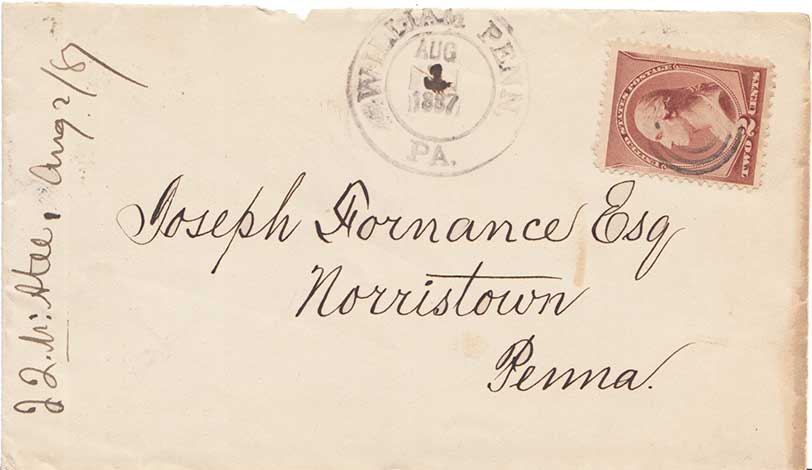 WILLIAM PENN
AUG
1887
PA.
UNITED STATES POSTAGE
2
TWO
Joseph Fornance Esq
Norristown
Penna.
Aug. 2/87